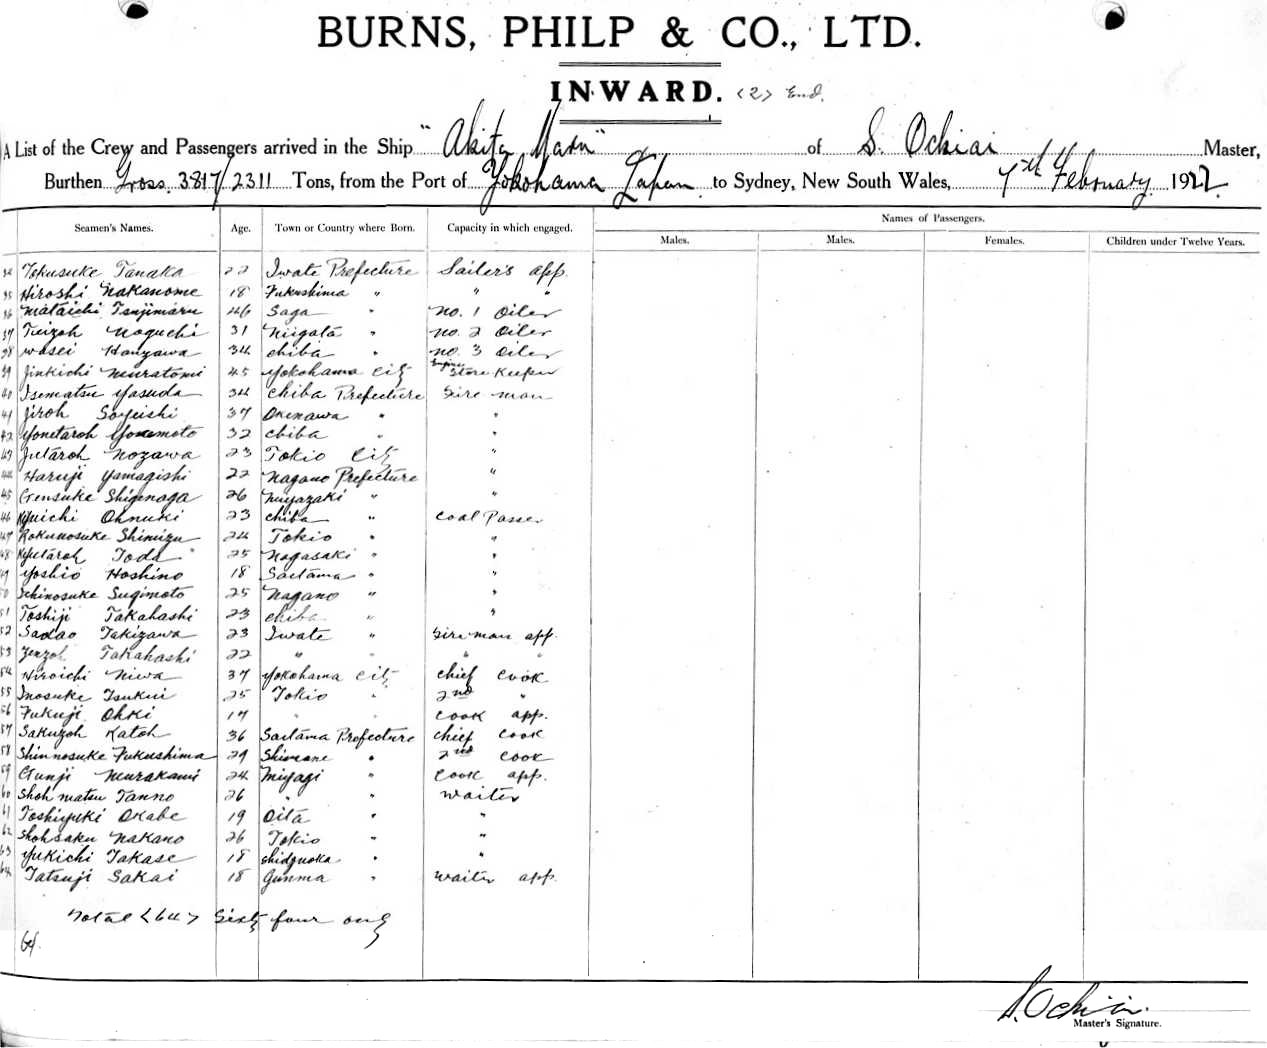 BURNS, PHILP & CO., LTD.
INWARD. <2> End.
A List of the Crew and Passengers arrived in the Ship "Akita Maru" of S. Ochiai Master,
Burthen Gross. 3817/2311 Tons, from the Port of Yokohama Japan to Sydney, New South Wales, 7th February 1922.
Names of Passengers.
Seamen's Names. Age. Town or Country where Born. Capacity in which engaged. Males. Males. Females. Children under Twelve Years.
34 Tokusuke Tanaka 22 Iwate Prefecture Sailer's app.
35 Hiroshi Nakanome 18 Fukushima " " "
36 Mataichi Tsujimaru 46 Saga " No. 1 Oiler
37 Teizoh Noguchi 31 Niigata " No. 2 Oiler
38 Wasei Hanzawa 34 Chiba " No. 3 Oiler
39 Jinkichi Muratomi 45 Yokohama City Engine Store Keeper
40 Isematsu Yasuda 34 Chiba Prefecture Fire man
41 Jiroh Soyeishi 37 Okinawa " "
42 Yonetaroh Yonemoto 32 Chiba " "
43 Jutaroh Nozawa 23 Tokio City "
44 Haruji Yamagishi 22 Nagano Prefecture "
45 Gensuke Shigenaga 26 Miyazaki " "
46 Kyuichi Ohnuki 23 Chiba " Coal Passer
47 Rokunosuke Shimizu 24 Tokio " "
48 Kyutaroh Toda 25 Nagasaki " "
49 Yoshio Hoshino 18 Saitama " "
50 Ichinosuke Sugimoto 25 Nagano " "
51 Toshiji Takahashi 23 Chiba " "
52 Sadao Takizawa 23 Iwate " Fire man app.
53 Zenzoh Takahashi 22 " " " "
54 Hiroichi Niwa 37 Yokohama City Chief Cook
55 Inosuke Tsukui 25 Tokio " 2nd "
56 Fukuji Ohki 17 " " Cook app.
57 Sakuzoh Katoh 36 Saitama Prefecture Chief Cook
58 Shinnosuke Fukushima 29 Shimane " 2nd Cook
59 Gunji Murakami 24 Miyagi " Cook app.
60 Shoh matsu Tanno 26 " " Waiter
61 Toshiyuki Okabe 19 Oita " "
62 Shohsaku Nakano 26 Tokio " "
63 Yukichi Takase 18 Shidzuoka " "
64 Tatsuji Sakai 18 Gunma " Waiter app.
Total <64> Sixty four only
64.
S. Ochiai.
Master's Signature.